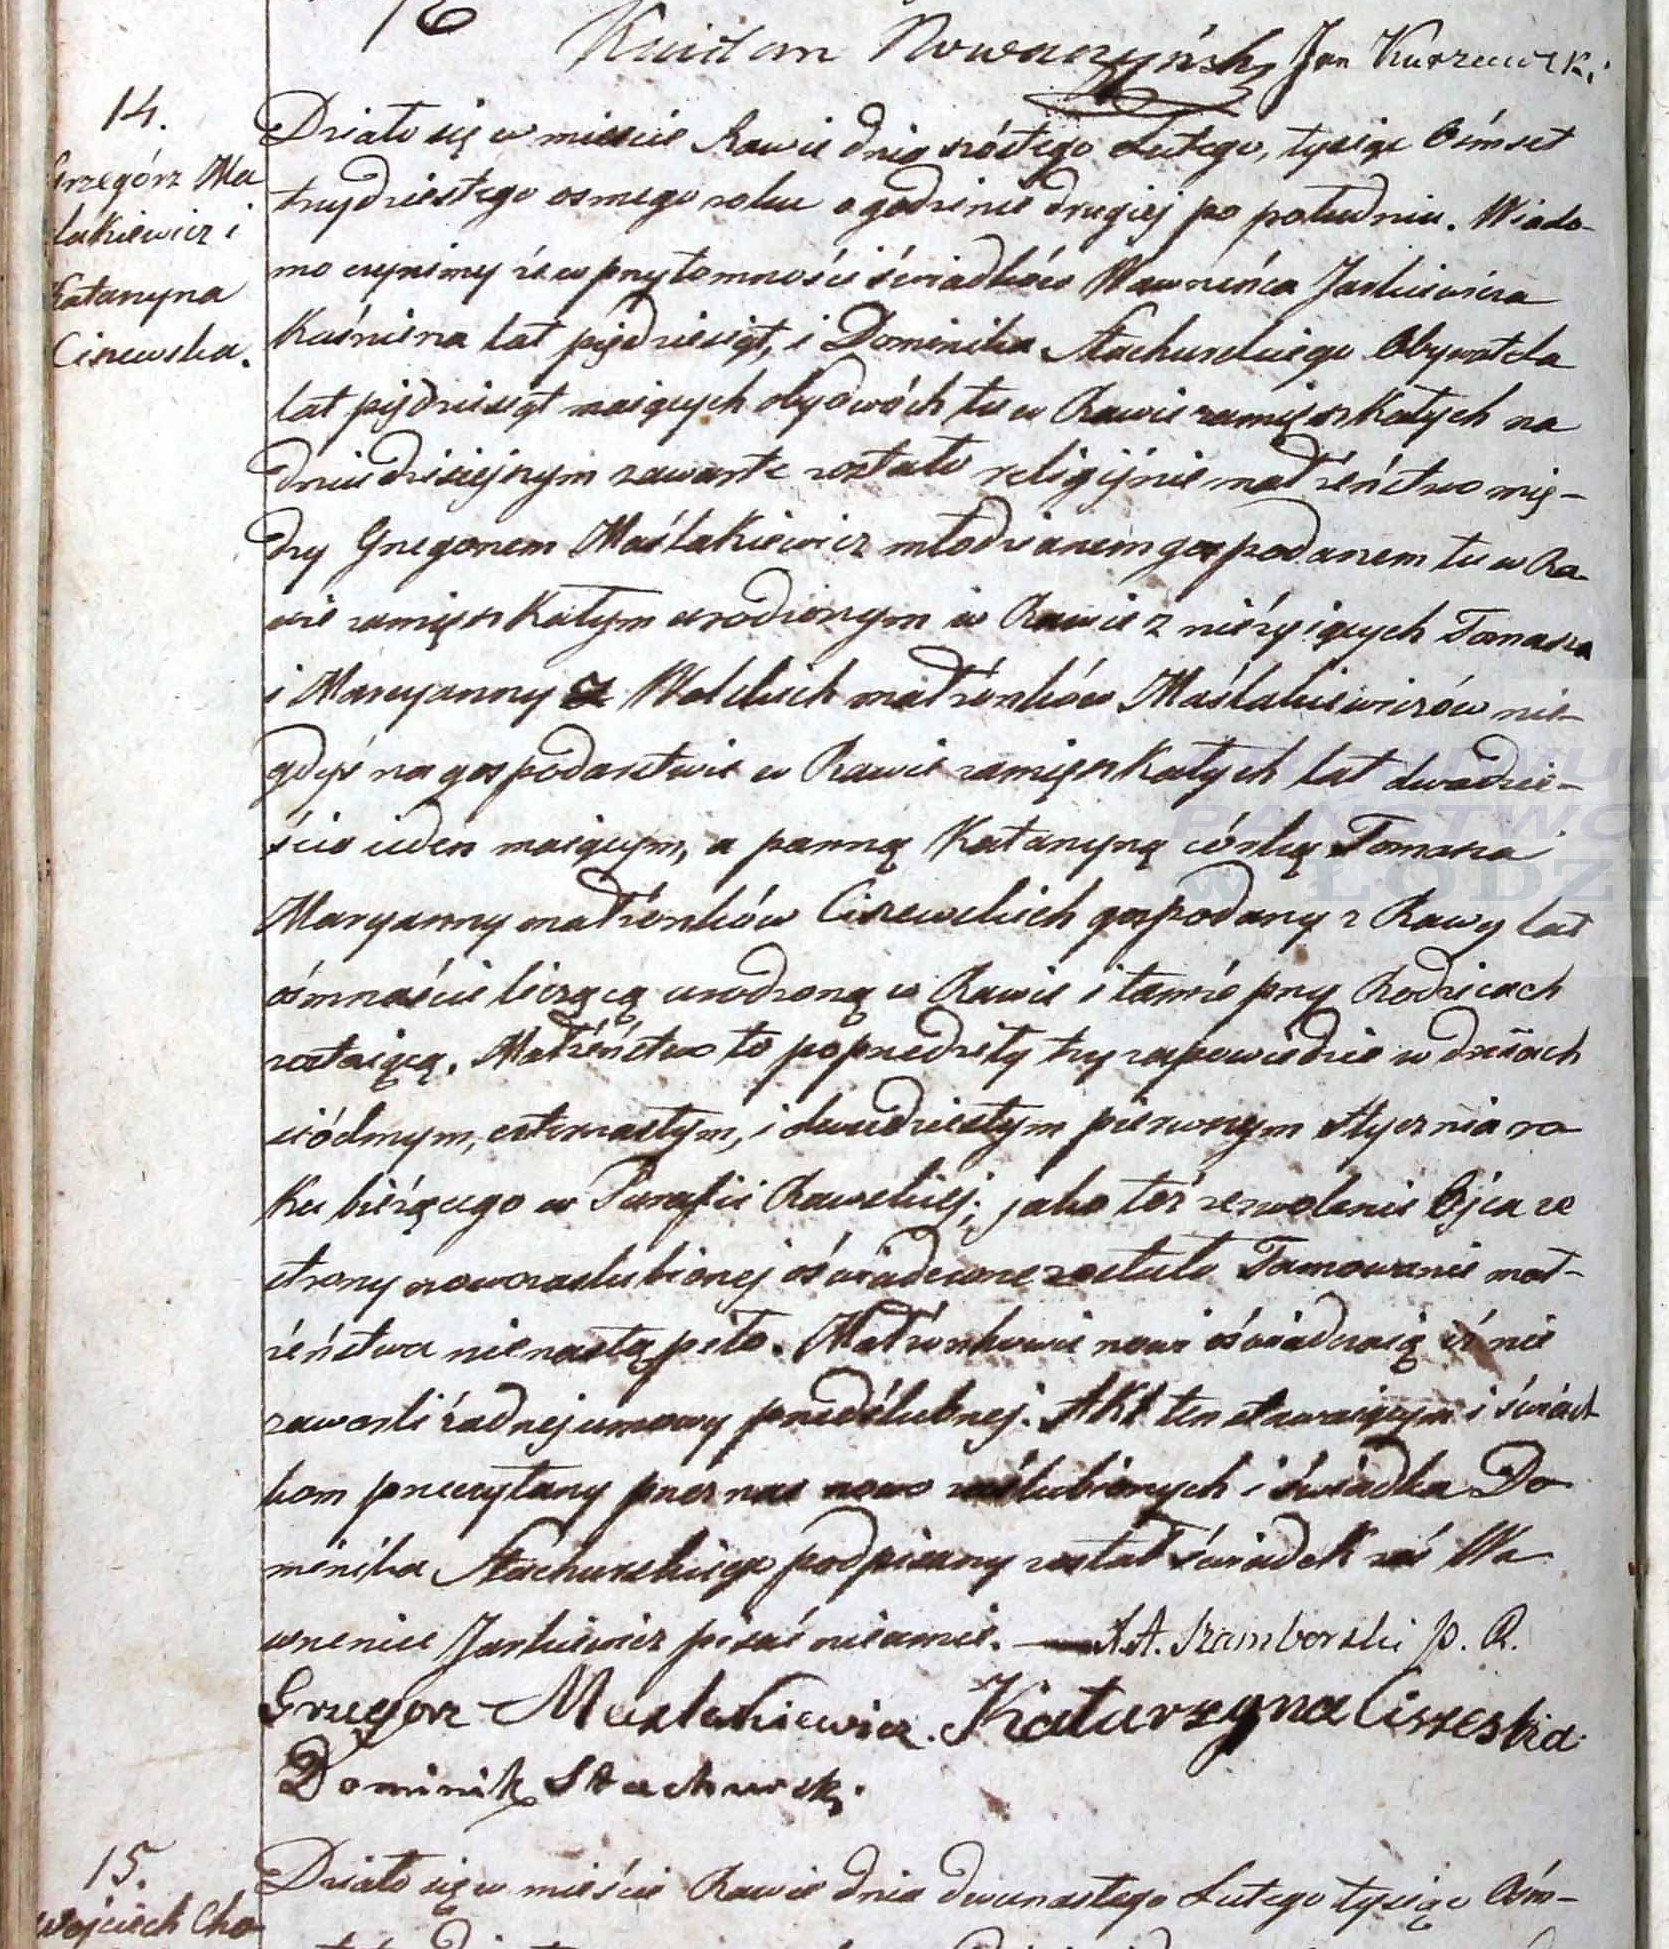 Nowaczyński Jan Kurzewski
14.
Grzegórz Ma
lakiewicz i
Katarzyna
Ciszewska.
Działo się w mieście Rawie dnia szóstego Lutego, tysiąc Ośmset
trzydziestego osmego roku o godzinie drugiej po południu. Wiado-
mo czynimy że w przytomności świadków Wawrzeńca Jankiewicza
Kuśnierza lat pięćdziesiąt, i Dominika Stachurskiego Obywatela
lat pięćdziesiąt maiących obydwóch tu w Rawie zamięszkałych na
dniu dzisiejszym zawarte zostało religijnie małżeństwo mię-
dzy Grzegorzem Maślakiewicz młodzianem gospodarzem tu w Ra
wie zamięszkałym urodzonym w Rawie z nieżyiących Tomasza
i Maryanny z Wolskich małżonków Maślakiewiczów nie-
gdyś na gospodarstwie w Rawie zamięszkałych lat dwadzie-
ścia ieden maiącym, a panną Katarzyną córką Tomasza i
Maryanny małżonków Ciszewskich gospodarzy z Rawy lat
ośmnaście liczącą urodzoną w Rawie i tamże przy Rodzicach
zostaiącą. Małżeństwo to poprzedziły trzy zapowiedzie w dniach
siódmym, czternastym, i dwudziestym pierwszym stycznia ro
ku bieżącego w Parafii Rawskiej; jako też zezwolenie Ojca ze
strony nowozaslubionej oświadczone zostało Tamowanie mał-
żeństwa nie nastąpiło. Małżonkowie nowi oświadczaią iż nie
zawarli żadnej umowy przedślubnej. Akt ten stawaiącym i świad
kom przeczytany przez nas nowo zaślubionych i świadka Do
minika Stachurskiego podpisany został świadek zaś Wa
wrzeniec Jankiewicz pisać nieumie. — A. Szamborski p. R.
Grzegorz Maslakiewicz. Katarzyna Ciszeska
Dominik Stachurski.
15.
Wojciech Cho
Działo się w mieście Rawie dnia dwunastego Lutego tysiąc Ośm-
ARCHIWUM
PAŃSTWOWE
w ŁODZI